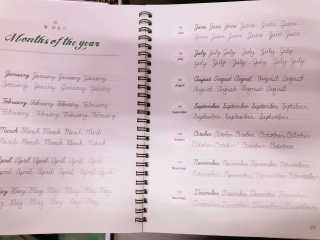 Months of the year
January January January January
January January January January
February February February February
February February February February
March March March March March
March March March March March
April April April April April April
April April April April April April
May May May May May May
May May May May May May
June June June June June June
June June June June June
July July July July July July
July July July July July July
August August August August August
August August August August August
September September September September
September September September September
October October October October October
October October October October
November November November November
November November November November
December December December December
December December December December